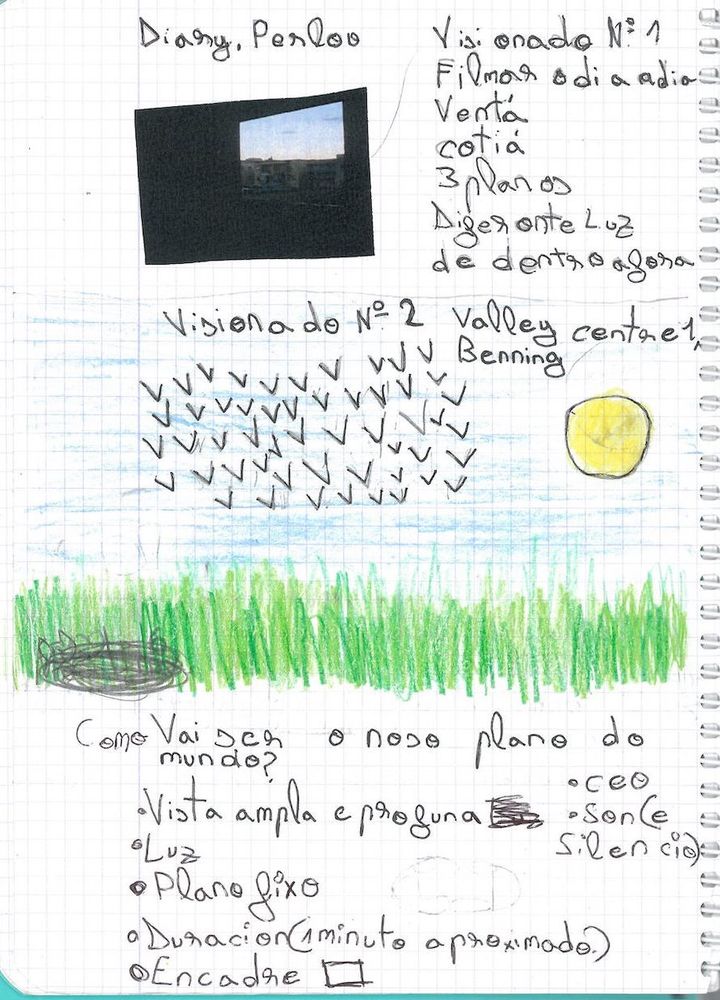 Diary, Perloo
Visionado Nº 1
Filmar o día a día
Ventá
cotiá
3 planos
Diferente Luz
de dentro a fora
Visionado Nº 2 Valley centre1,
Benning
Como Vai ser o noso plano do
mundo?
•Vista ampla e profuna
•Luz
•Plano fixo
•Duracion(1minuto aproximado.)
•Encadre
•ceo
•Son(e
silencio)